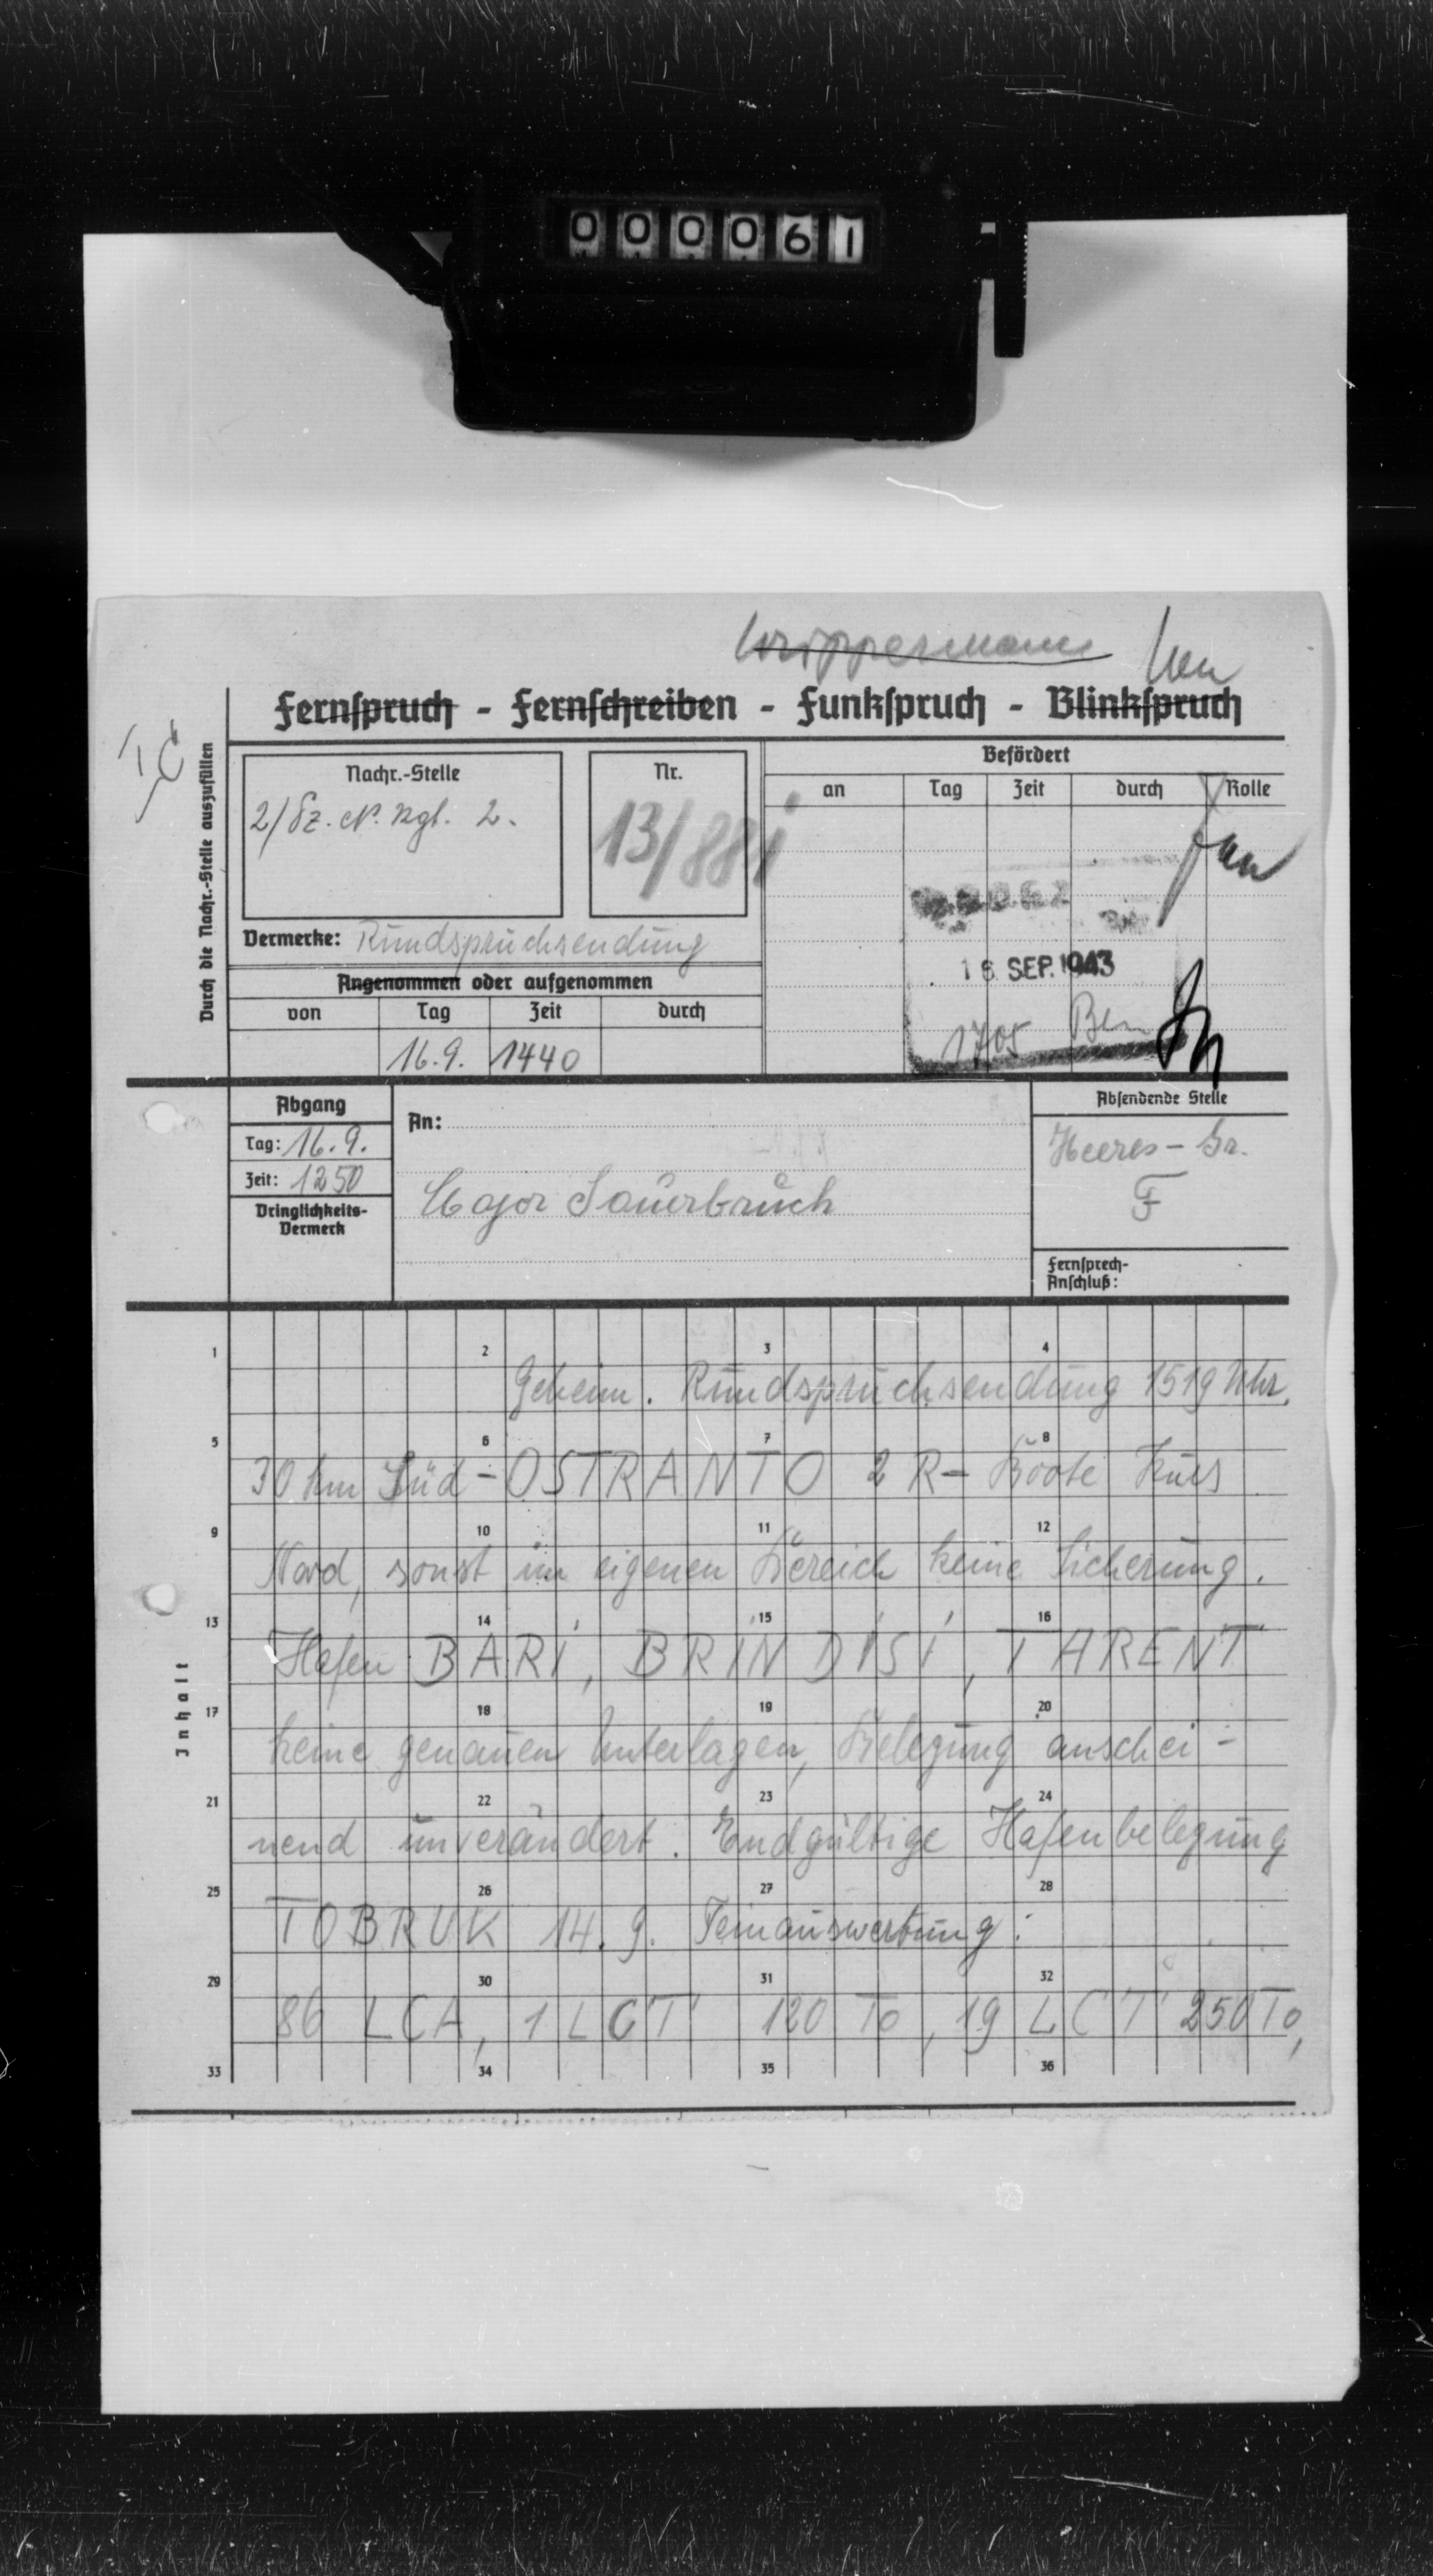 000061
Ic
Fernspruch - Fernschreiben - Funkspruch - Blinkspruch
Durch die Nachr.-Stelle auszufüllen
Nachr.-Stelle
2/Fz. N. Rgt. 2.
Nr.
13/88
Befördert
an Tag Zeit durch Rolle
Vermerke: Rundspruchsendung
16 SEP. 1943
1705
Angenommen oder aufgenommen
von Tag Zeit durch
16.9. 1440
Abgang
Tag: 16.9.
Zeit: 1250
Dringlichkeits-
Vermerk
An:
Major Sauerbruch
Absendende Stelle
Heeres-Gr.
F
Fernsprech-
Anschluß:
Inhalt
1 2 3 4
Geheim. Rundspruchsendung 1519 Uhr,
5 6 7 8
30 km Süd-OSTRANTO 2 R-Boote Kurs
9 10 11 12
Nord, sonst im eigenen Bereich keine Sicherung.
13 14 15 16
Hafen BARI, BRINDISI, TARENT
17 18 19 20
keine genauen Unterlagen, Belegung anschei-
21 22 23 24
nend unverändert. Endgültige Hafenbelegung
25 26 27 28
TOBRUK 14.9. Feinauswertung:
29 30 31 32
86 LCA, 1 LCT 120 To, 19 LCT 250 To,
33 34 35 36